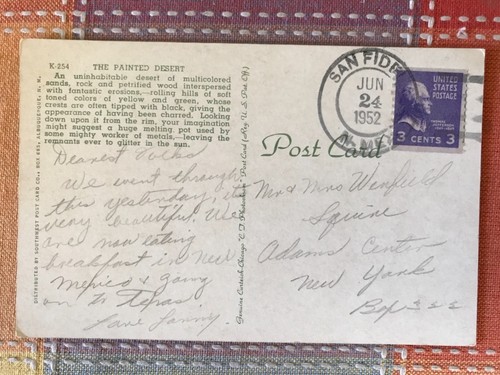 K-254 THE PAINTED DESERT
An uninhabitable desert of multicolored
sands, rock and petrified wood interspersed
with fantastic erosions,—rolling hills of soft
toned colors of yellow and green, whose
crests are often tipped with black, giving the
appearance of having been charred. Looking
down upon it from the rim, your imagination
might suggest a huge melting pot used by
some mighty worker of metals,—leaving the
remnants ever to glitter in the sun.
Dearest Folks
We went through
this yesterday, it
very beautiful. We
are now eating
breakfast in New
Mexico & going
on to Texas
Love
DISTRIBUTED BY SOUTHWEST POST CARD CO., BOX 685, ALBUQUERQUE, N. M.
Genuine Curteich-Chicago "C.T. Post Card (Reg. U. S. Pat. Off.)
Post Card
SAN FIDEL
JUN
24
1952
N. MEX.
UNITED
STATES
POSTAGE
3 CENTS 3
Mr & Mrs Winfield
Squire
Adams Center
New York
Box 322